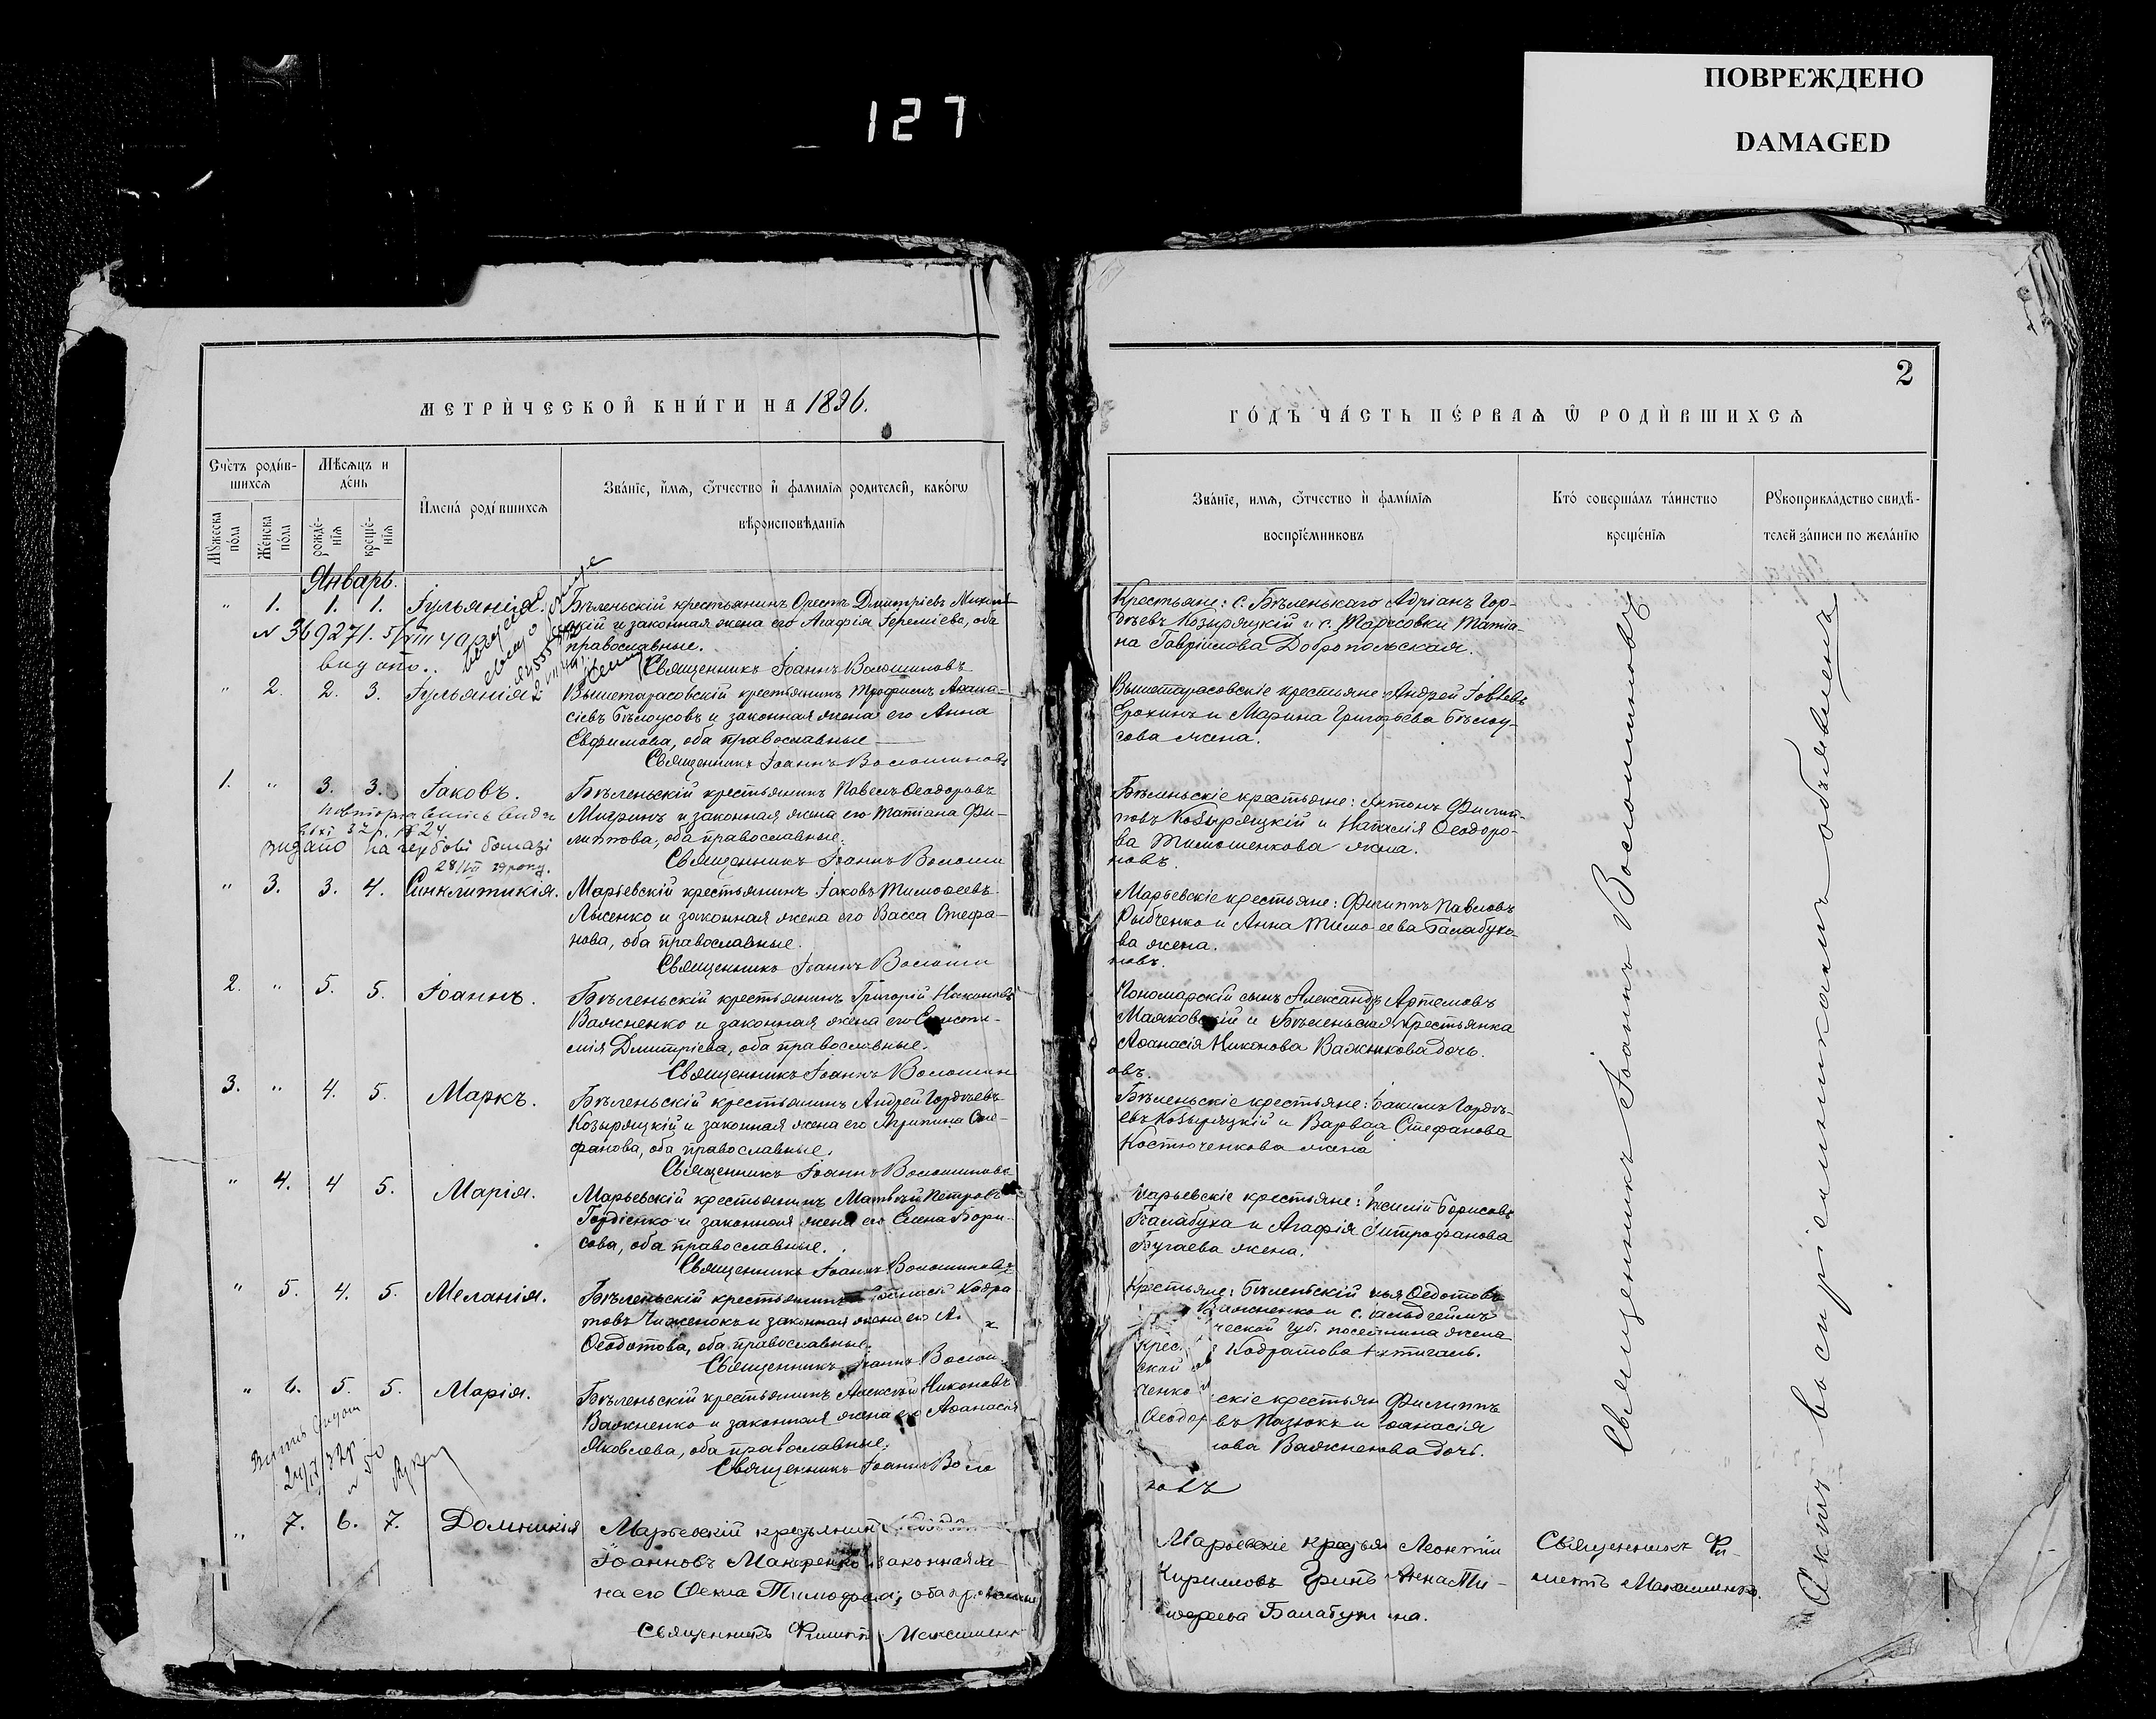 ПОВРЕЖДЕНО
DAMAGED
127
МЕТРИ́ЧЕСКОЙ КНИ́ГИ НА 1896.
Сче́тъ роди́в-
шихсѧ
Мѣ́сѧцъ и
де́нь
Мꙋ́жеска
по́ла
Же́нска
по́ла
рожде́-
нїѧ
креще́-
нїѧ
И҆мена̀ роди́вшихсѧ
Зва́нїе, и҆́мѧ, ѻ҆́тчество и҆ фами́лїѧ роди́телей, како́гѡ
вѣроисповѣ́данїѧ
Январь.
" 1. 1. 1. Іульянія.
Бѣленьскій крестьянинъ Орестъ Дмитріевъ
и законная жена его Агафія Іереміева, оба
православные.
Священникъ Іоаннъ Волошиновъ
" 2. 2. 3. Іульянія
Вышетарасовскій крестьянинъ Трофимъ Аѳана-
сіевъ Бѣлоусовъ и законная жена его Анна
Евфимова, оба православные
Священникъ Іоаннъ Волошиновъ
1. " 3. 3. Іаковъ.
Бѣленьскій крестьянинъ Павелъ Ѳеодоровъ
Мигринъ и законная жена его Татіана Фи-
липпова, оба православные.
Священникъ Іоаннъ Волоши
видано на гербові бомазі
" 3. 3. 4. Синклитикія.
Марьевскій крестьянинъ Іаковъ Тимоѳеевъ
Лысенко и законная жена его Васса Стефа-
нова, оба православные.
Священникъ Іоаннъ Волоши
2. " 5. 5. Іоаннъ.
Бѣленьскій крестьянинъ Григорій Никоновъ
Важненко и законная жена его
мія Дмитріева, оба православные.
Священникъ Іоаннъ Волошин
3. " 4. 5. Маркъ.
Бѣленьскій крестьянинъ Андрей Гордѣевъ
Козыряцкій и законная жена его Агрипина Сте-
фанова, оба православные.
Священникъ Іоаннъ Волошиновъ
" 4. 4 5. Марія.
Марьевскій крестьянинъ Матвѣй Петровъ
Гордіенко и законная жена его Елена Бори-
сова, оба православные.
Священникъ Іоаннъ Волошиновъ
" 5. 4. 5. Меланія.
Бѣленьскій крестьянинъ Кодра
товъ Чиженокъ и законная жена его А.
Ѳеодотова, оба православные.
Священникъ Іоаннъ Волош
" 6. 5. 5. Марія.
Бѣленьскій крестьянинъ Алексѣй Никоновъ
Важненко и законная жена его Аѳанасія
Яковлева, оба православные.
Священникъ Іоаннъ Воло
" 7. 6. 7. Домникія
Марьевскій крестьянинъ
Іоанновъ Макаренко и законная же-
на его Ѳекла Тимофеева; оба православные
Священникъ Филиппъ Максименк
2
ГО́ДЪ ЧА́СТЬ ПЕ́РВАѦ Ѡ҆ РОДИ́ВШИХСѦ
Зва́нїе, и҆мѧ, ѻ҆́тчество и҆ фами́лїѧ
воспрїе́мниковъ
Кто̀ соверша́лъ та́инство
креще́нїѧ
Рꙋкоприкла́дство свидѣ́-
телей за́писи по жела́нїю
Крестьяне: с. Бѣленькаго Адріанъ Гор-
дѣевъ Козыряцкій и с. Тарасовки Татіа-
на Гавріилова Добропольская.
Вышетарасовскіе крестьяне Андрей Іовлевъ
Ерохинъ и Марина Григорьева Бѣлоу-
сова жена.
Бѣленьскіе крестьяне: Антонъ Филип-
повъ Козыряцкій и Наталія Ѳеодоро-
ва Тимошенкова жена.
новъ.
Марьевскіе крестьяне: Филиппъ Павловъ
Рыбченко и Анна Тимоѳеева Балабухо-
ва жена.
новъ.
Пономарскій сынъ Александръ Артемовъ
Маяковскій и Бѣленьская крестьянка
Аѳанасія Никонова Важненкова дочь.
овъ.
Бѣленьскіе крестьяне: Іоакимъ Гордѣ-
евъ Козыряцкій и Варвара Стефанова
Костюченкова жена
Марьевскіе крестьяне: Василій Борисовъ
Балабуха и Агафія Митрофанова
Бугаева жена.
Крестьяне: Бѣленьскій Илья Ѳедотовъ
Важненко и с.
ческой губ. поселянина жена
Кодратова
скіе крестьян Филиппъ
въ Позюкъ и Аѳанасія
нова Важненкова дочь.
новъ
Марьевскіе крестьян Леонтій
Кириловъ Гринь Анна Ти-
мофеева Балабух на.
Священникъ Іоаннъ Волошиновъ
Священникъ Фи-
липпъ Максименко.
Актъ воспріемникамъ объявленъ